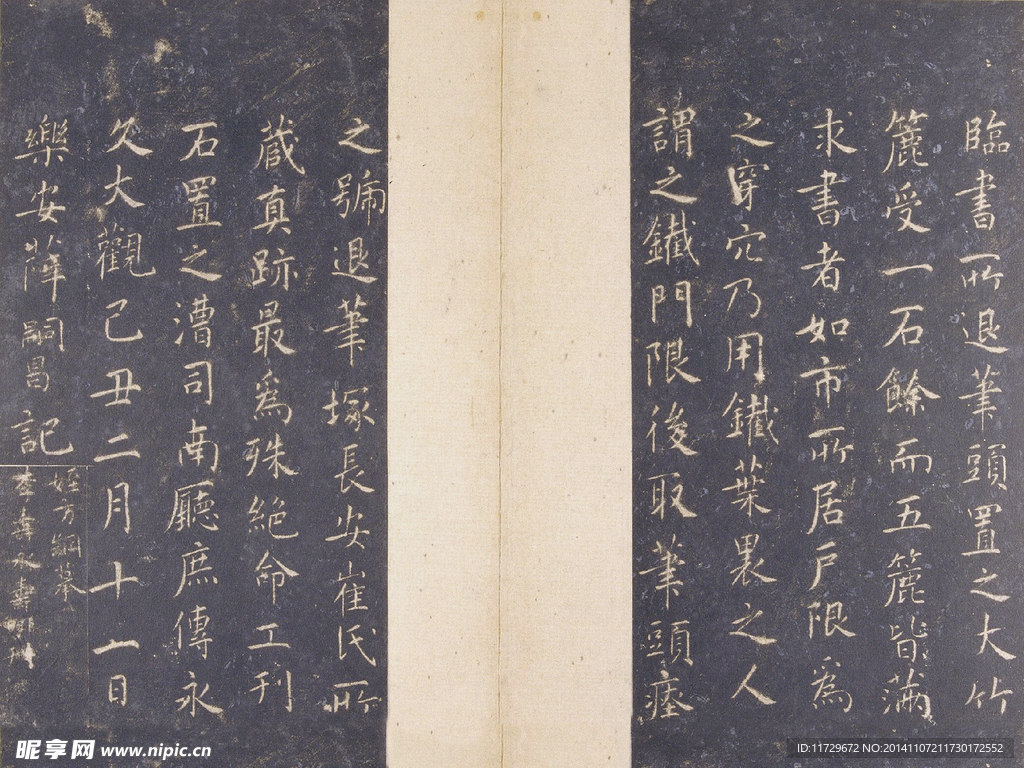 臨書所退筆頭置之大竹
簏受一石餘而五簏皆滿
求書者如市所居戶限爲
之穿穴乃用鐵葉裹之人
謂之鐵門限後取筆頭瘞
之號退筆塚長安崔氏所
蔵真跡最爲殊絕命工刊
石置之漕司南廳庶傳永
久大觀己丑二月十一日
樂安薛嗣昌記
姪方綱摹
昵享网 www.nipic.cn
ID:11729672 NO:20141107211730172552